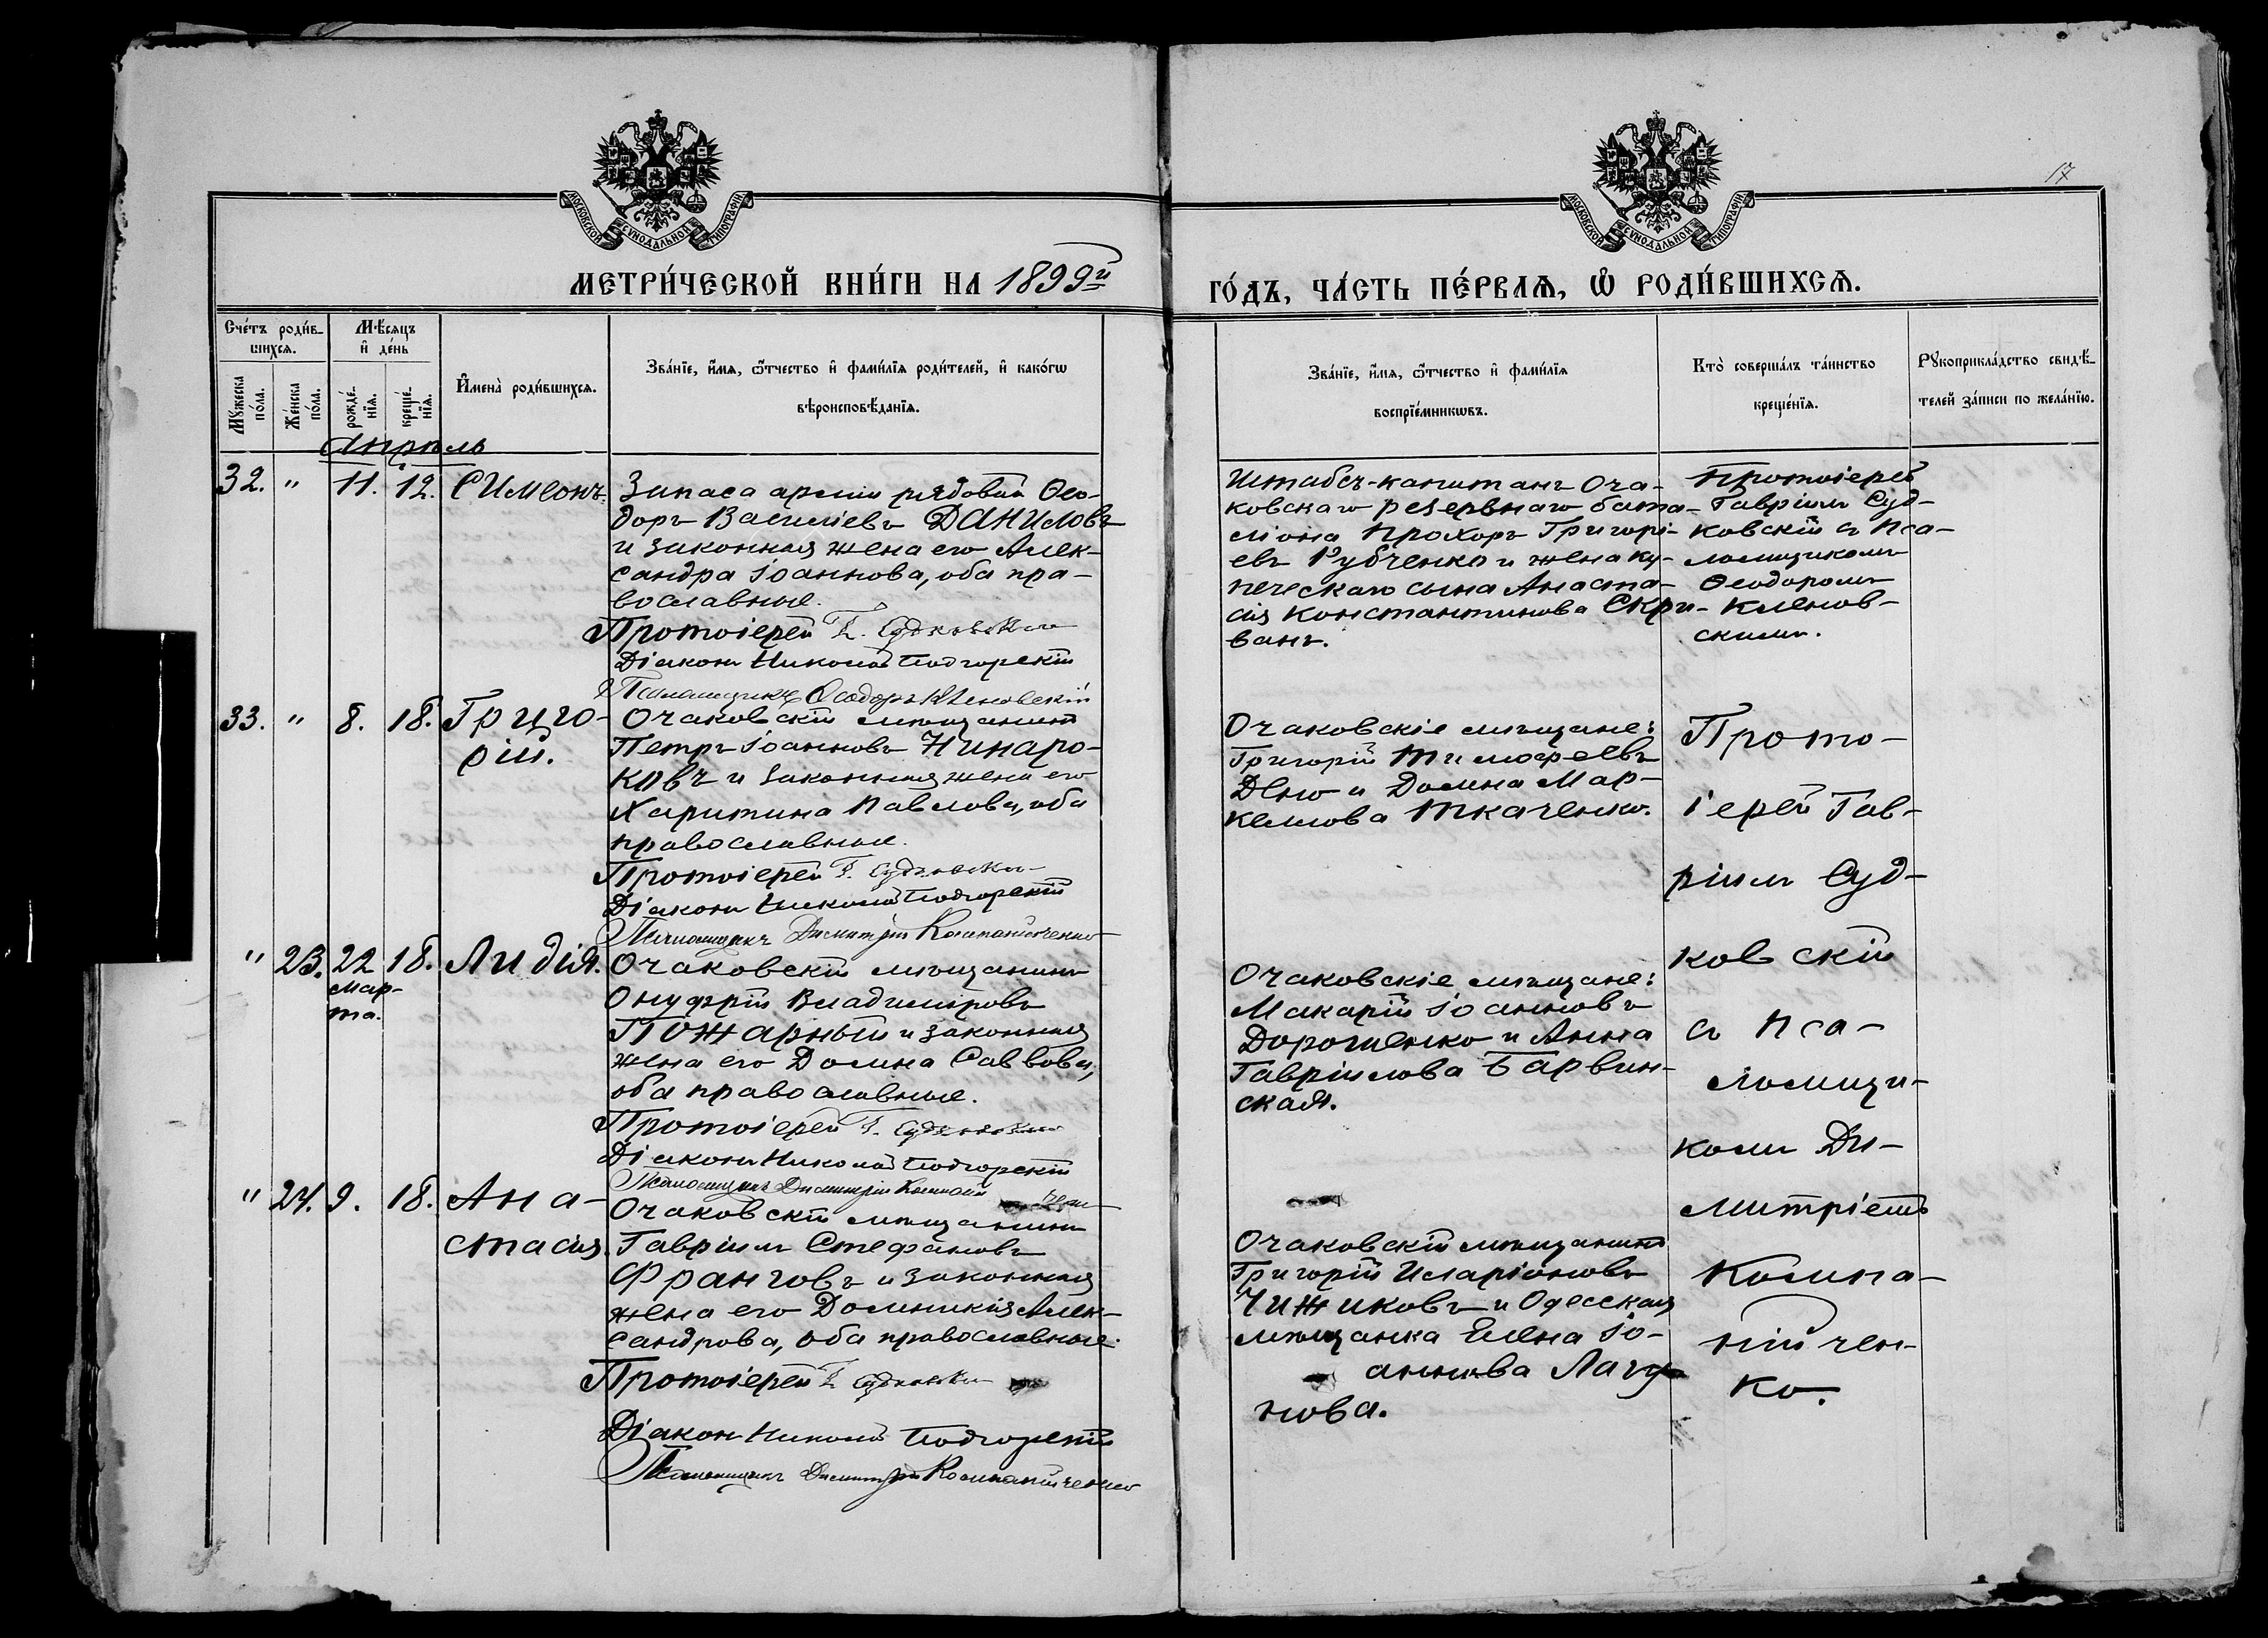 17
МОСКОВСКОЙ СУНОДАЛЬНОЙ ТИПОГРАФІИ
МОСКОВСКОЙ СУНОДАЛЬНОЙ ТИПОГРАФІИ
МЕТРИ́ЧЕСКОЙ КНИ́ГИ НА 1899й
ГО́ДЪ, ЧА́СТЬ ПЕ́РВАѦ, Ѡ҆ РОДИ́ВШИХСѦ.
Сче́тъ роди́в-
шихсѧ.
Мѣ́сѧцъ
и҆ де́нь
Мꙋ́жеска
по́ла.
Же́нска
по́ла.
рожде́-
нїѧ.
креще́-
нїѧ.
И҆мена̀ роди́вшихсѧ.
Зва́нїе, и҆́мѧ, ѻ҆́тчество и҆ фами́лїѧ роди́телей, и҆ како́гѡ
вѣроисповѣ́данїѧ.
Зва́нїе, и҆́мѧ, ѻ҆́тчество и҆ фами́лїѧ
воспрїе́мникѡвъ.
Кто̀ соверша́лъ та́инство
креще́нїѧ.
Рꙋкоприкла́дство свидѣ́-
телей за́писи по жела́нїю.
Апрѣль
32. " 11. 12. Симеонъ.
Запаса арміи рядовой Ѳео-
доръ Василіевъ Даниловъ
и законная жена его Алек-
сандра Іоаннова, оба пра-
вославные.
Протоіерей Г. Судковскій
Діаконъ Николай Подгорскій
Псаломщикъ Ѳеодоръ Кленовскій
Штабсъ-капитанъ Оча-
ковскаго резервнаго бата-
ліона Прохоръ Григорі-
евъ Рубченко и жена ку-
печескаго сына Анаста-
сія Константинова Скри-
ванъ.
Протоіерей
Гавріилъ Суд-
ковскій съ Пса-
ломщикомъ
Ѳеодоромъ
Кленов-
скимъ.
33. " 8. 18. Григо-
рій.
Очаковскій мѣщанинъ
Петръ Іоанновъ
и законная жена его
Харитина Павлова, оба
православные.
Протоіерей Г. Судковскій
Діаконъ Николай Подгорскій
Псаломщикъ Димитрій Компанійченко
Очаковскіе мѣщане:
Григорій Тимофеевъ
и Домна Мар-
келлова Ткаченко.
Прото-
іерей Гав-
ріилъ Суд-
ковскій
съ Пса-
ломщи-
комъ Ди-
митріемъ
Компа-
ній чен-
ко.
" 23. 22 18. Лидія.
Мар-
та.
Очаковскій мѣщанинъ
Онуфрій Владиміровъ
Пожарный и законная
жена его Домна Саввова,
оба православные.
Протоіерей Г. Судковскій
Діаконъ Николай Подгорскій
Псаломщикъ Димитрій Компанійченко
Очаковскіе мѣщане:
Макарій Іоанновъ
Дорошенко и Анна
Гавріилова Барвин-
ская.
" 24. 9. 18. Ана-
стасія.
Очаковскій мѣщанинъ
Гавріилъ Стефановъ
Франговъ и законная
жена его Домникія Алек-
сандрова, оба православные.
Протоіерей Г. Судковскій
Діаконъ Николай Подгорскій
Псаломщикъ Димитрій Компанійченко
Очаковскій мѣщанинъ
Григорій Иларіоновъ
Чижиковъ и Одесская
мѣщанка Елена Іо-
аннова Лагу-
нова.